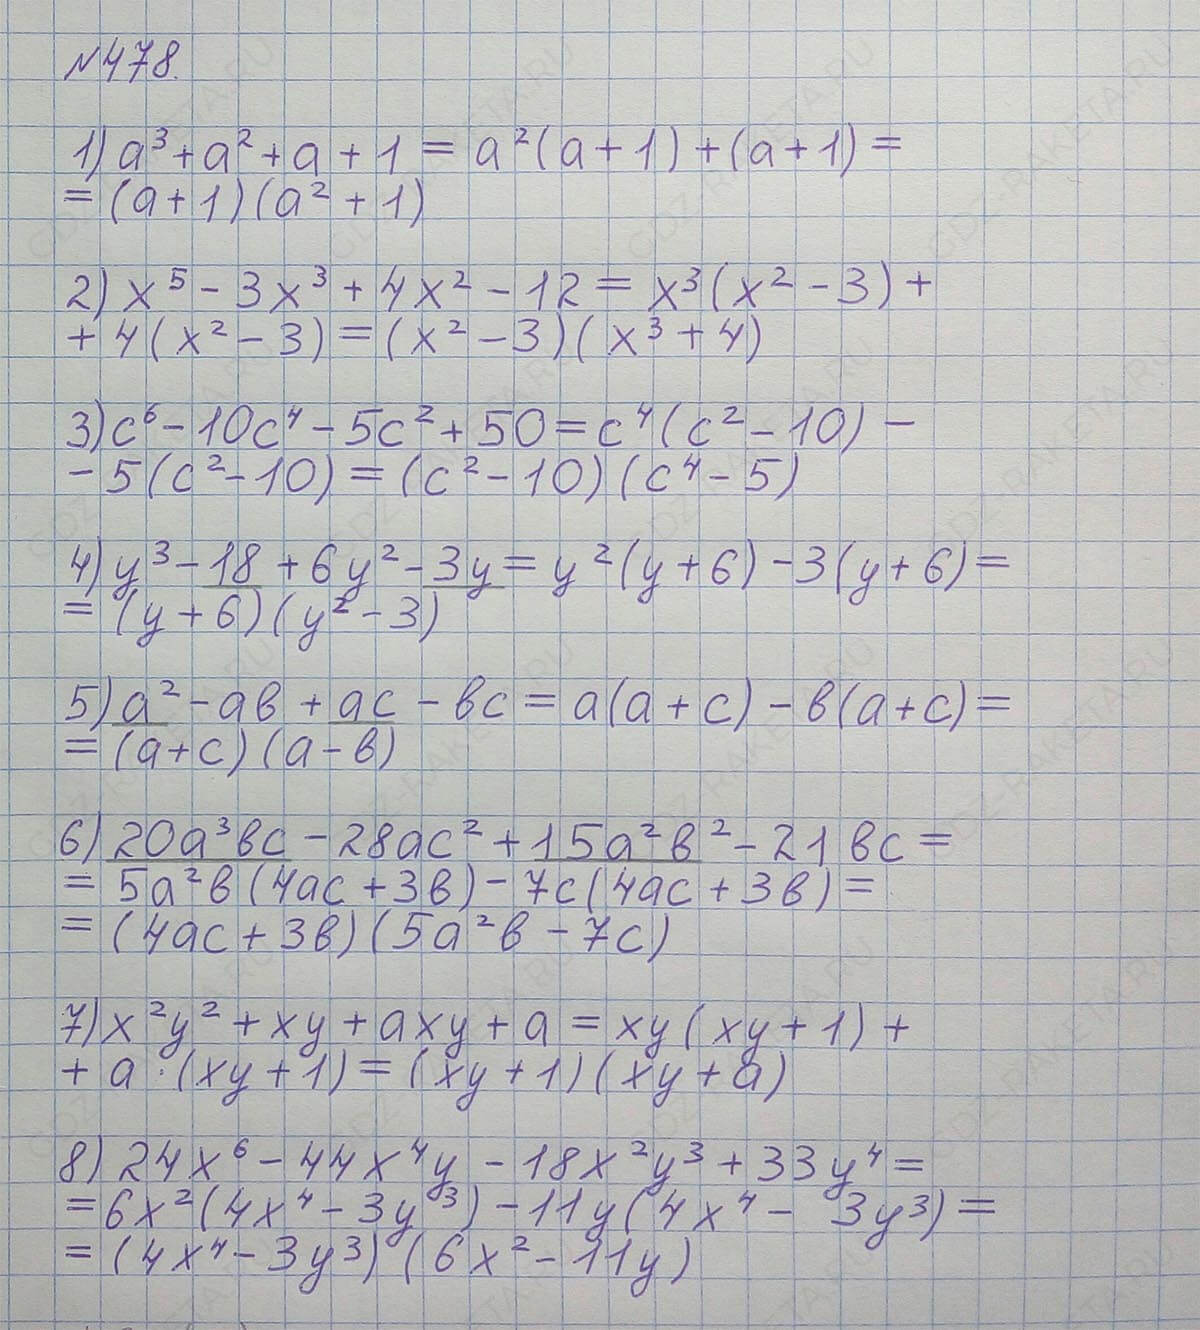 №478.
1) a³ + a² + a + 1 = a²(a + 1) + (a + 1) =
= (a + 1)(a² + 1)
2) x⁵ - 3x³ + 4x² - 12 = x³(x² - 3) +
+ 4(x² - 3) = (x² - 3)(x³ + 4)
3) c⁶ - 10c⁴ - 5c² + 50 = c⁴(c² - 10) -
- 5(c² - 10) = (c² - 10)(c⁴ - 5)
4) y³ - 18 + 6y² - 3y = y²(y + 6) - 3(y + 6) =
= (y + 6)(y² - 3)
5) a² - aв + ac - вc = a(a + c) - в(a + c) =
= (a + c)(a - в)
6) 20a³вc - 28ac² + 15a²в² - 21вc =
= 5a²в(4ac + 3в) - 7c(4ac + 3в) =
= (4ac + 3в)(5a²в - 7c)
7) x²y² + xy + axy + a = xy(xy + 1) +
+ a · (xy + 1) = (xy + 1)(xy + a)
8) 24x⁶ - 44x⁴y - 18x²y³ + 33y⁴ =
= 6x²(4x⁴ - 3y³) - 11y(4x⁴ - 3y³) =
= (4x⁴ - 3y³)(6x² - 11y)